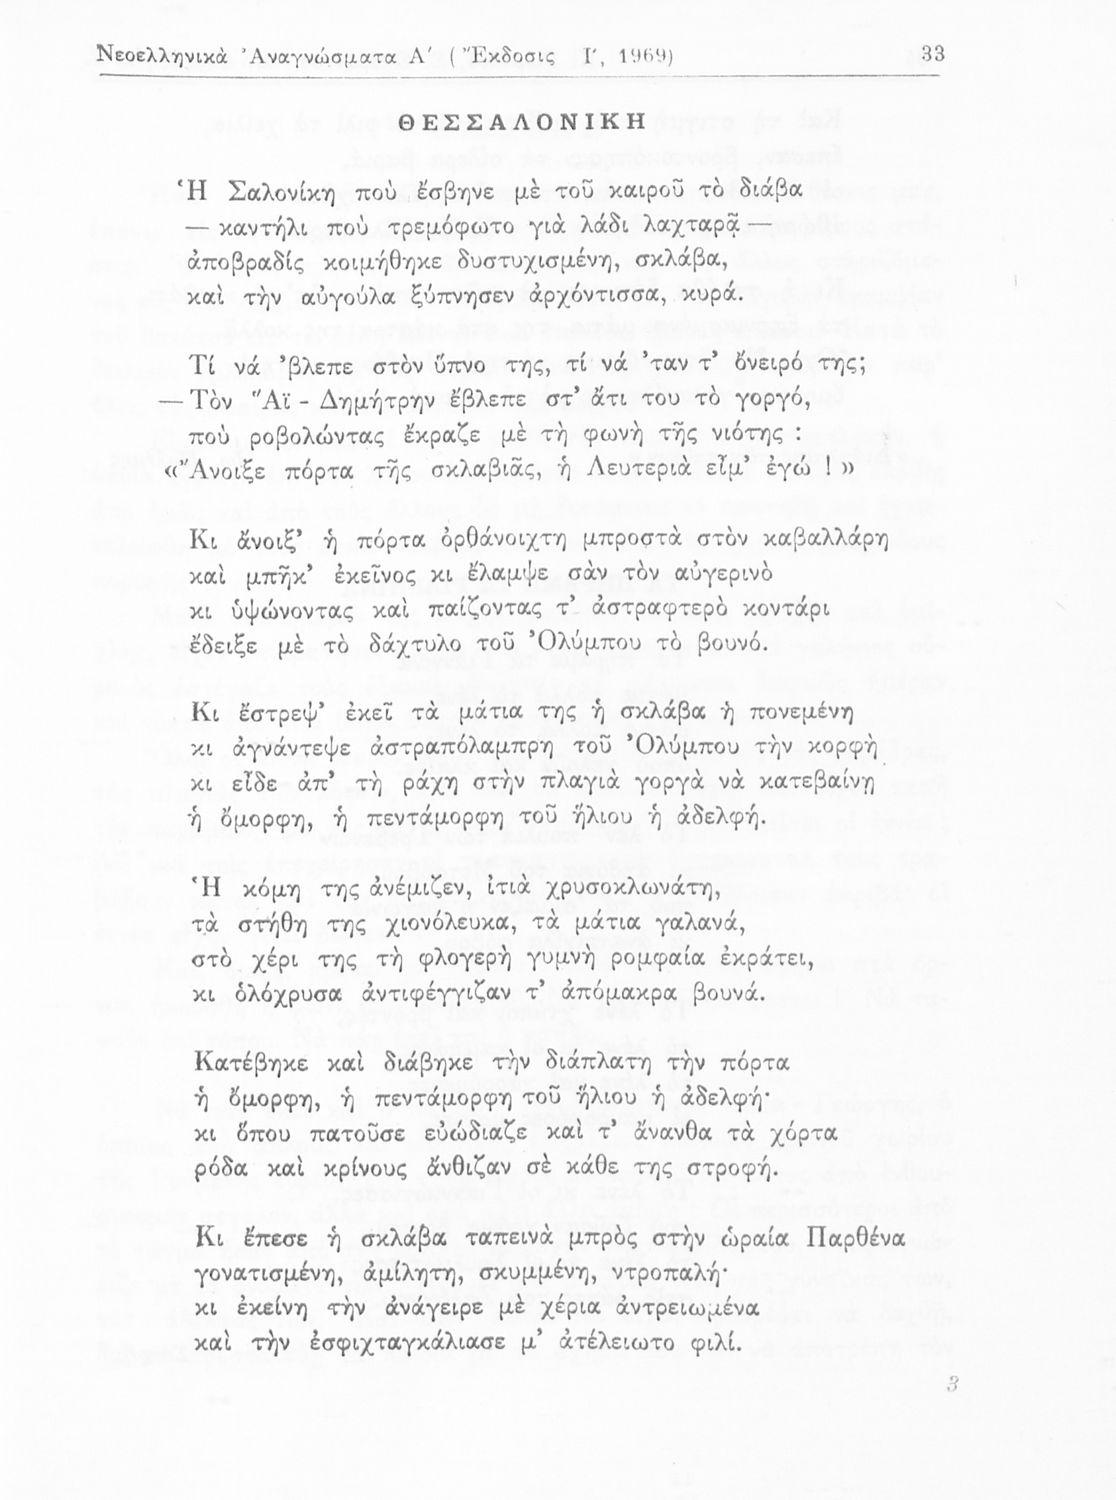 Νεοελληνικὰ Ἀναγνώσματα Α′ (Ἔκδοσις Ι′, 1969) 33
ΘΕΣΣΑΛΟΝΙΚΗ
Ἡ Σαλονίκη ποὺ ἔσβηνε μὲ τοῦ καιροῦ τὸ διάβα
— καντήλι ποὺ τρεμόφωτο γιὰ λάδι λαχταρᾷ —
ἀποβραδὶς κοιμήθηκε δυστυχισμένη, σκλάβα,
καὶ τὴν αὐγούλα ξύπνησεν ἀρχόντισσα, κυρά.
Τί νά ’βλεπε στὸν ὕπνο της, τί νά ’ταν τ’ ὄνειρό της;
— Τὸν Ἅϊ - Δημήτρην ἔβλεπε στ’ ἄτι του τὸ γοργό,
ποὺ ροβολώντας ἔκραζε μὲ τὴ φωνὴ τῆς νιότης :
«Ἄνοιξε πόρτα τῆς σκλαβιᾶς, ἡ Λευτεριὰ εἶμ’ ἐγώ ! »
Κι ἄνοιξ’ ἡ πόρτα ὀρθάνοιχτη μπροστὰ στὸν καβαλλάρη
καὶ μπῆκ’ ἐκεῖνος κι ἔλαμψε σὰν τὸν αὐγερινὸ
κι ὑψώνοντας καὶ παίζοντας τ’ ἀστραφτερὸ κοντάρι
ἔδειξε μὲ τὸ δάχτυλο τοῦ Ὀλύμπου τὸ βουνό.
Κι ἔστρεψ’ ἐκεῖ τὰ μάτια της ἡ σκλάβα ἡ πονεμένη
κι ἀγνάντεψε ἀστραπόλαμπρη τοῦ Ὀλύμπου τὴν κορφὴ
κι εἶδε ἀπ’ τὴ ράχη στὴν πλαγιὰ γοργὰ νὰ κατεβαίνῃ
ἡ ὄμορφη, ἡ πεντάμορφη τοῦ ἥλιου ἡ ἀδελφή.
Ἡ κόμη της ἀνέμιζεν, ἰτιὰ χρυσοκλωνάτη,
τὰ στήθη της χιονόλευκα, τὰ μάτια γαλανά,
στὸ χέρι της τὴ φλογερὴ γυμνὴ ρομφαία ἐκράτει,
κι ὁλόχρυσα ἀντιφέγγιζαν τ’ ἀπόμακρα βουνά.
Κατέβηκε καὶ διάβηκε τὴν διάπλατη τὴν πόρτα
ἡ ὄμορφη, ἡ πεντάμορφη τοῦ ἥλιου ἡ ἀδελφή·
κι ὅπου πατοῦσε εὐώδιαζε καὶ τ’ ἄνανθα τὰ χόρτα
ρόδα καὶ κρίνους ἄνθιζαν σὲ κάθε της στροφή.
Κι ἔπεσε ἡ σκλάβα ταπεινὰ μπρὸς στὴν ὡραία Παρθένα
γονατισμένη, ἀμίλητη, σκυμμένη, ντροπαλή·
κι ἐκείνη τὴν ἀνάγειρε μὲ χέρια ἀντρειωμένα
καὶ τὴν ἐσφιχταγκάλιασε μ’ ἀτέλειωτο φιλί.
3